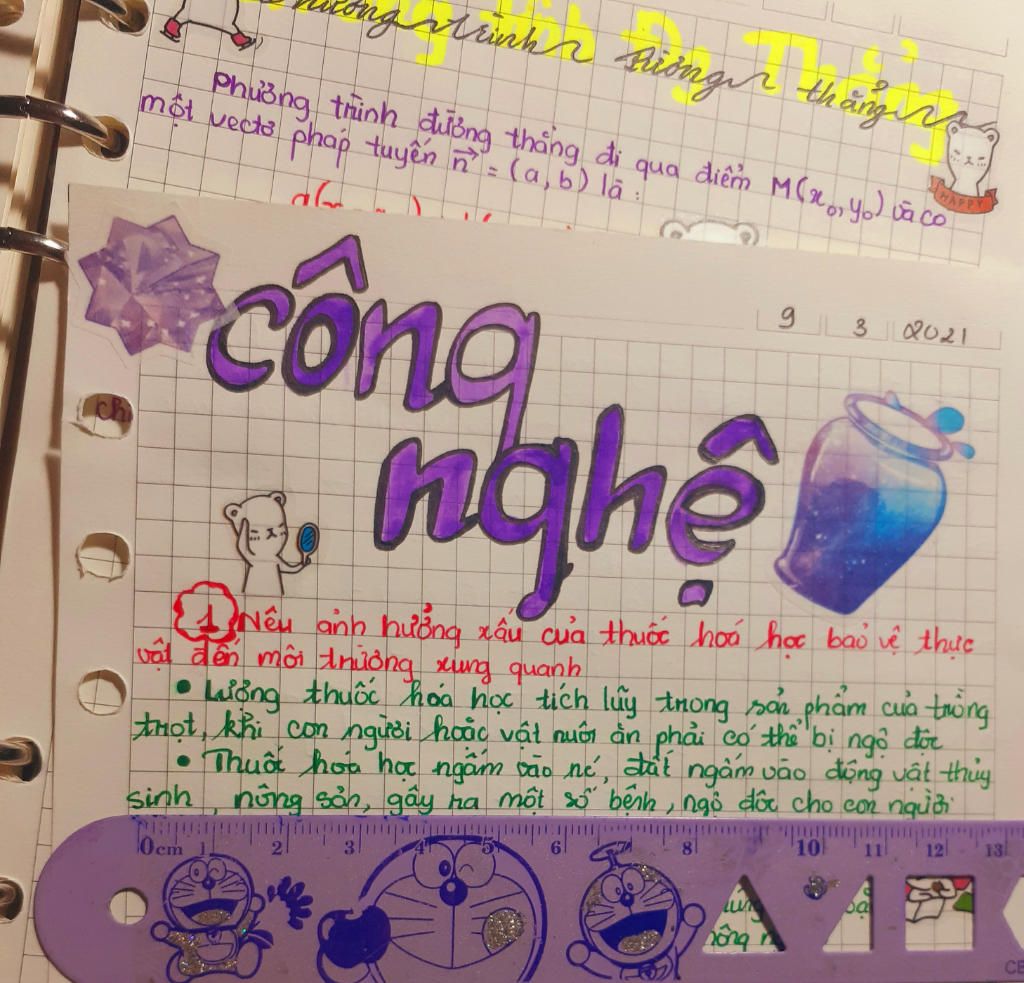 Phương trình đường thẳng
Phương trình đường thẳng đi qua điểm M(x₀, y₀) và có
một vectơ pháp tuyến n⃗ = (a, b) là :
HAPPY
công
nghệ
9 3 2021
1 Nêu ảnh hưởng xấu của thuốc hoá học bảo vệ thực
vật đến môi trường xung quanh
• Lượng thuốc hóa học tích lũy trong sản phẩm của trồng
trọt, khi con người hoặc vật nuôi ăn phải có thể bị ngộ độc
• Thuốc hóa học ngấm vào nc, đất ngấm vào động vật thủy
sinh, nông sản, gây ra một số bệnh, ngộ độc cho con người
0cm 1 2 3 4 5 6 7 8 10 11 12 13